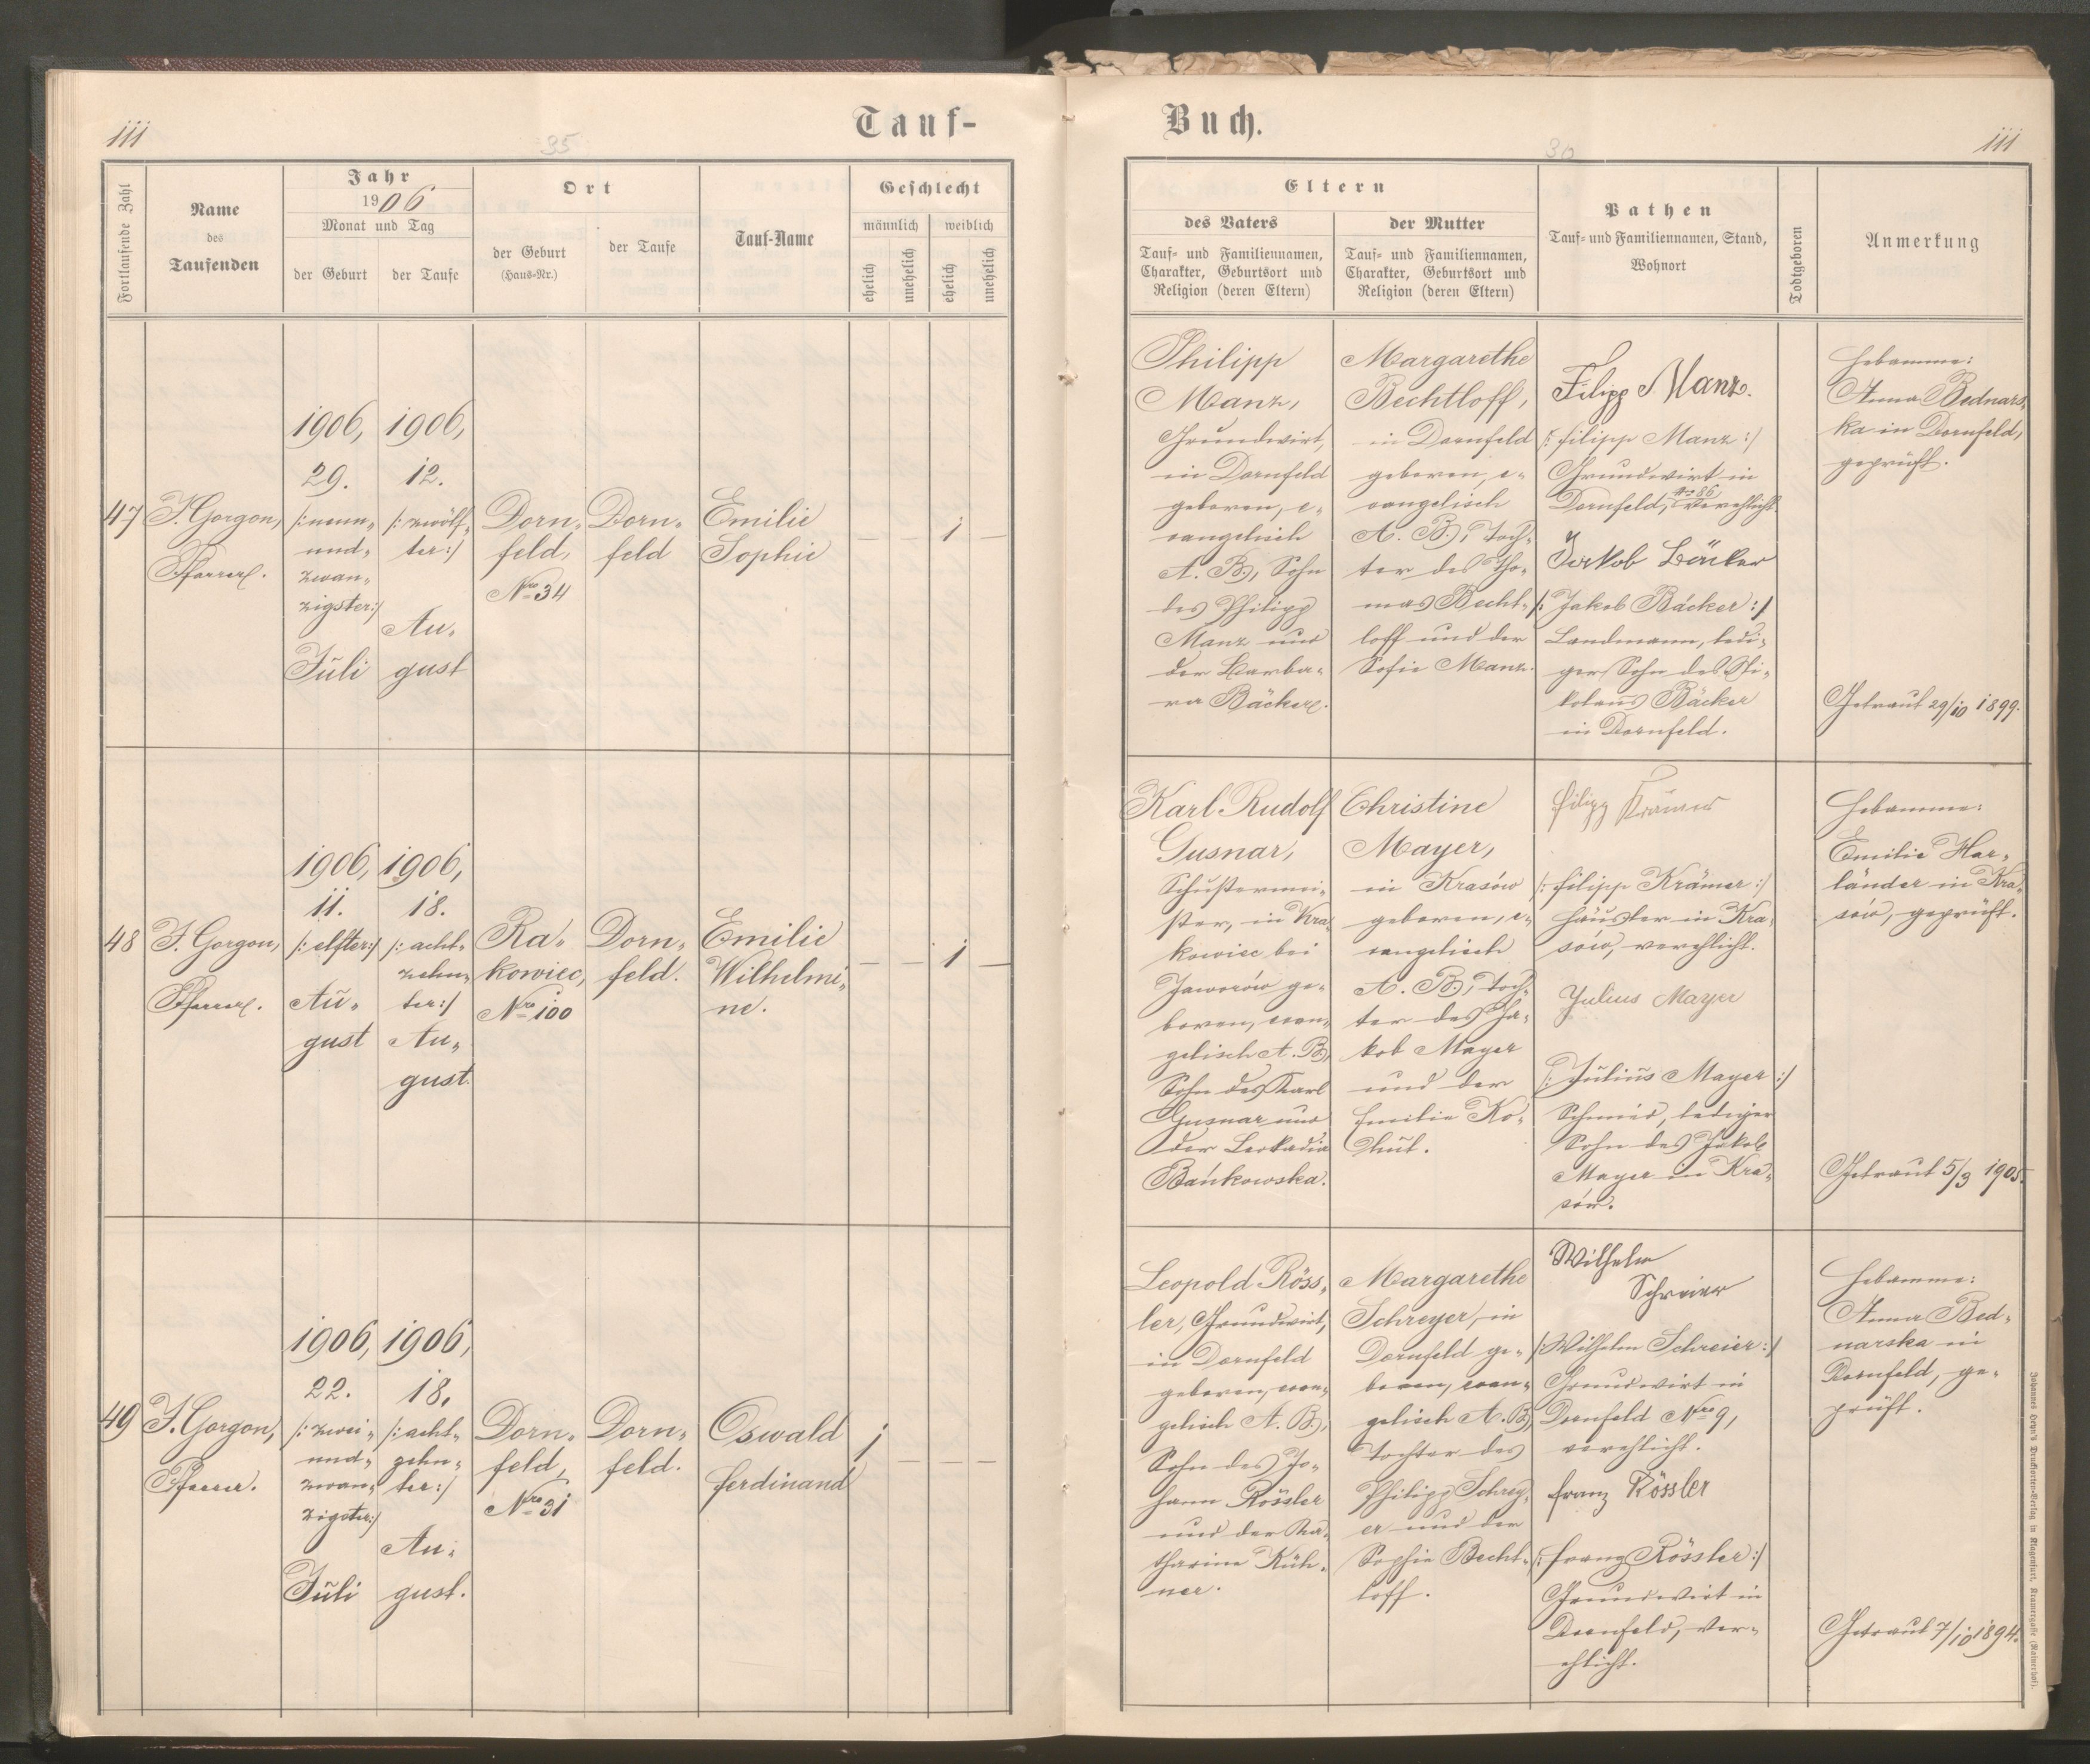 Tauf-
Buch.
111
35
30
111
Fortlaufende Zahl
Name
des
Taufenden
Jahr
1906
Monat und Tag
der Geburt
der Taufe
Ort
der Geburt
(Haus-Nr.)
der Taufe
Tauf-Name
Geschlecht
männlich
weiblich
ehelich
unehelich
ehelich
unehelich
Eltern
des Vaters
Tauf- und Familiennamen,
Charakter, Geburtsort und
Religion (deren Eltern)
der Mutter
Tauf- und Familiennamen,
Charakter, Geburtsort und
Religion (deren Eltern)
Pathen
Tauf- und Familiennamen, Stand,
Wohnort
Todtgeboren
Anmerkung
47
J. Gorgon,
Pfarrer.
1906,
29.
/:neun-
und-
zwan-
zigster:/
Juli
1906,
12.
/:zwölf-
ter:/
Au-
gust
Dorn-
feld,
Nro 34
Dorn-
feld
Emilie
Sophie
— — 1 —
Philipp
Manz,
Grundwirt,
in Dornfeld
geboren, e-
vangelisch
A. B., Sohn
des Philipp
Manz und
der Barba-
ra Bäcker.
Margarethe
Bechtloff,
in Dornfeld
geboren, e-
vangelisch
A. B., Toch-
ter des Tho-
mas Becht-
loff und der
Sofie Manz.
Filipp Manz.
/: Filipp Manz :/
Grundwirt in
Dornfeld, Nro 86, verehlicht.
Jakob Bäcker
/: Jakob Bäcker :/
Landmann, ledi-
ger Sohn des Ni-
kolaus Bäcker
in Dornfeld.
Hebamme:
Anna Bednars-
ka in Dornfeld,
geprüft.
Getraut 29/10 1899.
48
J. Gorgon,
Pfarrer.
1906,
11.
/: elfter:/
Au-
gust
1906,
18.
/: acht-
zehn-
ter:/
Au-
gust.
Ra-
kowiec,
Nro 100
Dorn-
feld.
Emilie
Wilhelmi-
ne.
— — 1 —
Karl Rudolf
Gusnar,
Schustermei-
ster, in Kra-
kowiec bei
Jaworów ge-
boren, evan-
gelisch A. B.,
Sohn des Karl
Gusnar und
der Leokadia
Bańkowska.
Christine
Mayer,
in Krasów
geboren, e-
vangelisch
A. B., Toch-
ter des Ja-
kob Mayer
und der
Emilie Ko-
hut.
Filipp Krämer
/: Filipp Krämer :/
Häusler in Kra-
sów, verehlicht.
Julius Mayer
/: Julius Mayer :/
Schmied, lediger
Sohn des Jakob
Mayer in Kra-
sów.
Hebamme:
Emilie Har-
länder in Kra-
sów, geprüft.
Getraut 5/3 1905.
49
J. Gorgon,
Pfarrer.
1906,
22.
/: zwei-
und-
zwan-
zigster:/
Juli
1906,
18.
/: acht-
zehn-
ter:/
Au-
gust.
Dorn-
feld,
Nro 31
Dorn-
feld.
Oswald
Ferdinand
1 — — —
Leopold Röss-
ler, Grundwirt,
in Dornfeld
geboren, evan-
gelisch A. B.,
Sohn des Jo-
hann Rössler
und der Ka-
tharine Küh-
ner.
Margarethe
Schreyer, in
Dornfeld ge-
boren, evan-
gelisch A. B.,
Tochter des
Philipp Schrey-
er und der
Sophie Becht-
loff.
Wilhelm
Schreier
/: Wilhelm Schreier :/
Grundwirt in
Dornfeld Nro 9,
verehlicht.
Franz Rössler
/: Franz Rössler :/
Grundwirt in
Dornfeld, ver-
ehlicht.
Hebamme:
Anna Bed-
narska in
Dornfeld, ge-
prüft.
Getraut 7/10 1894.